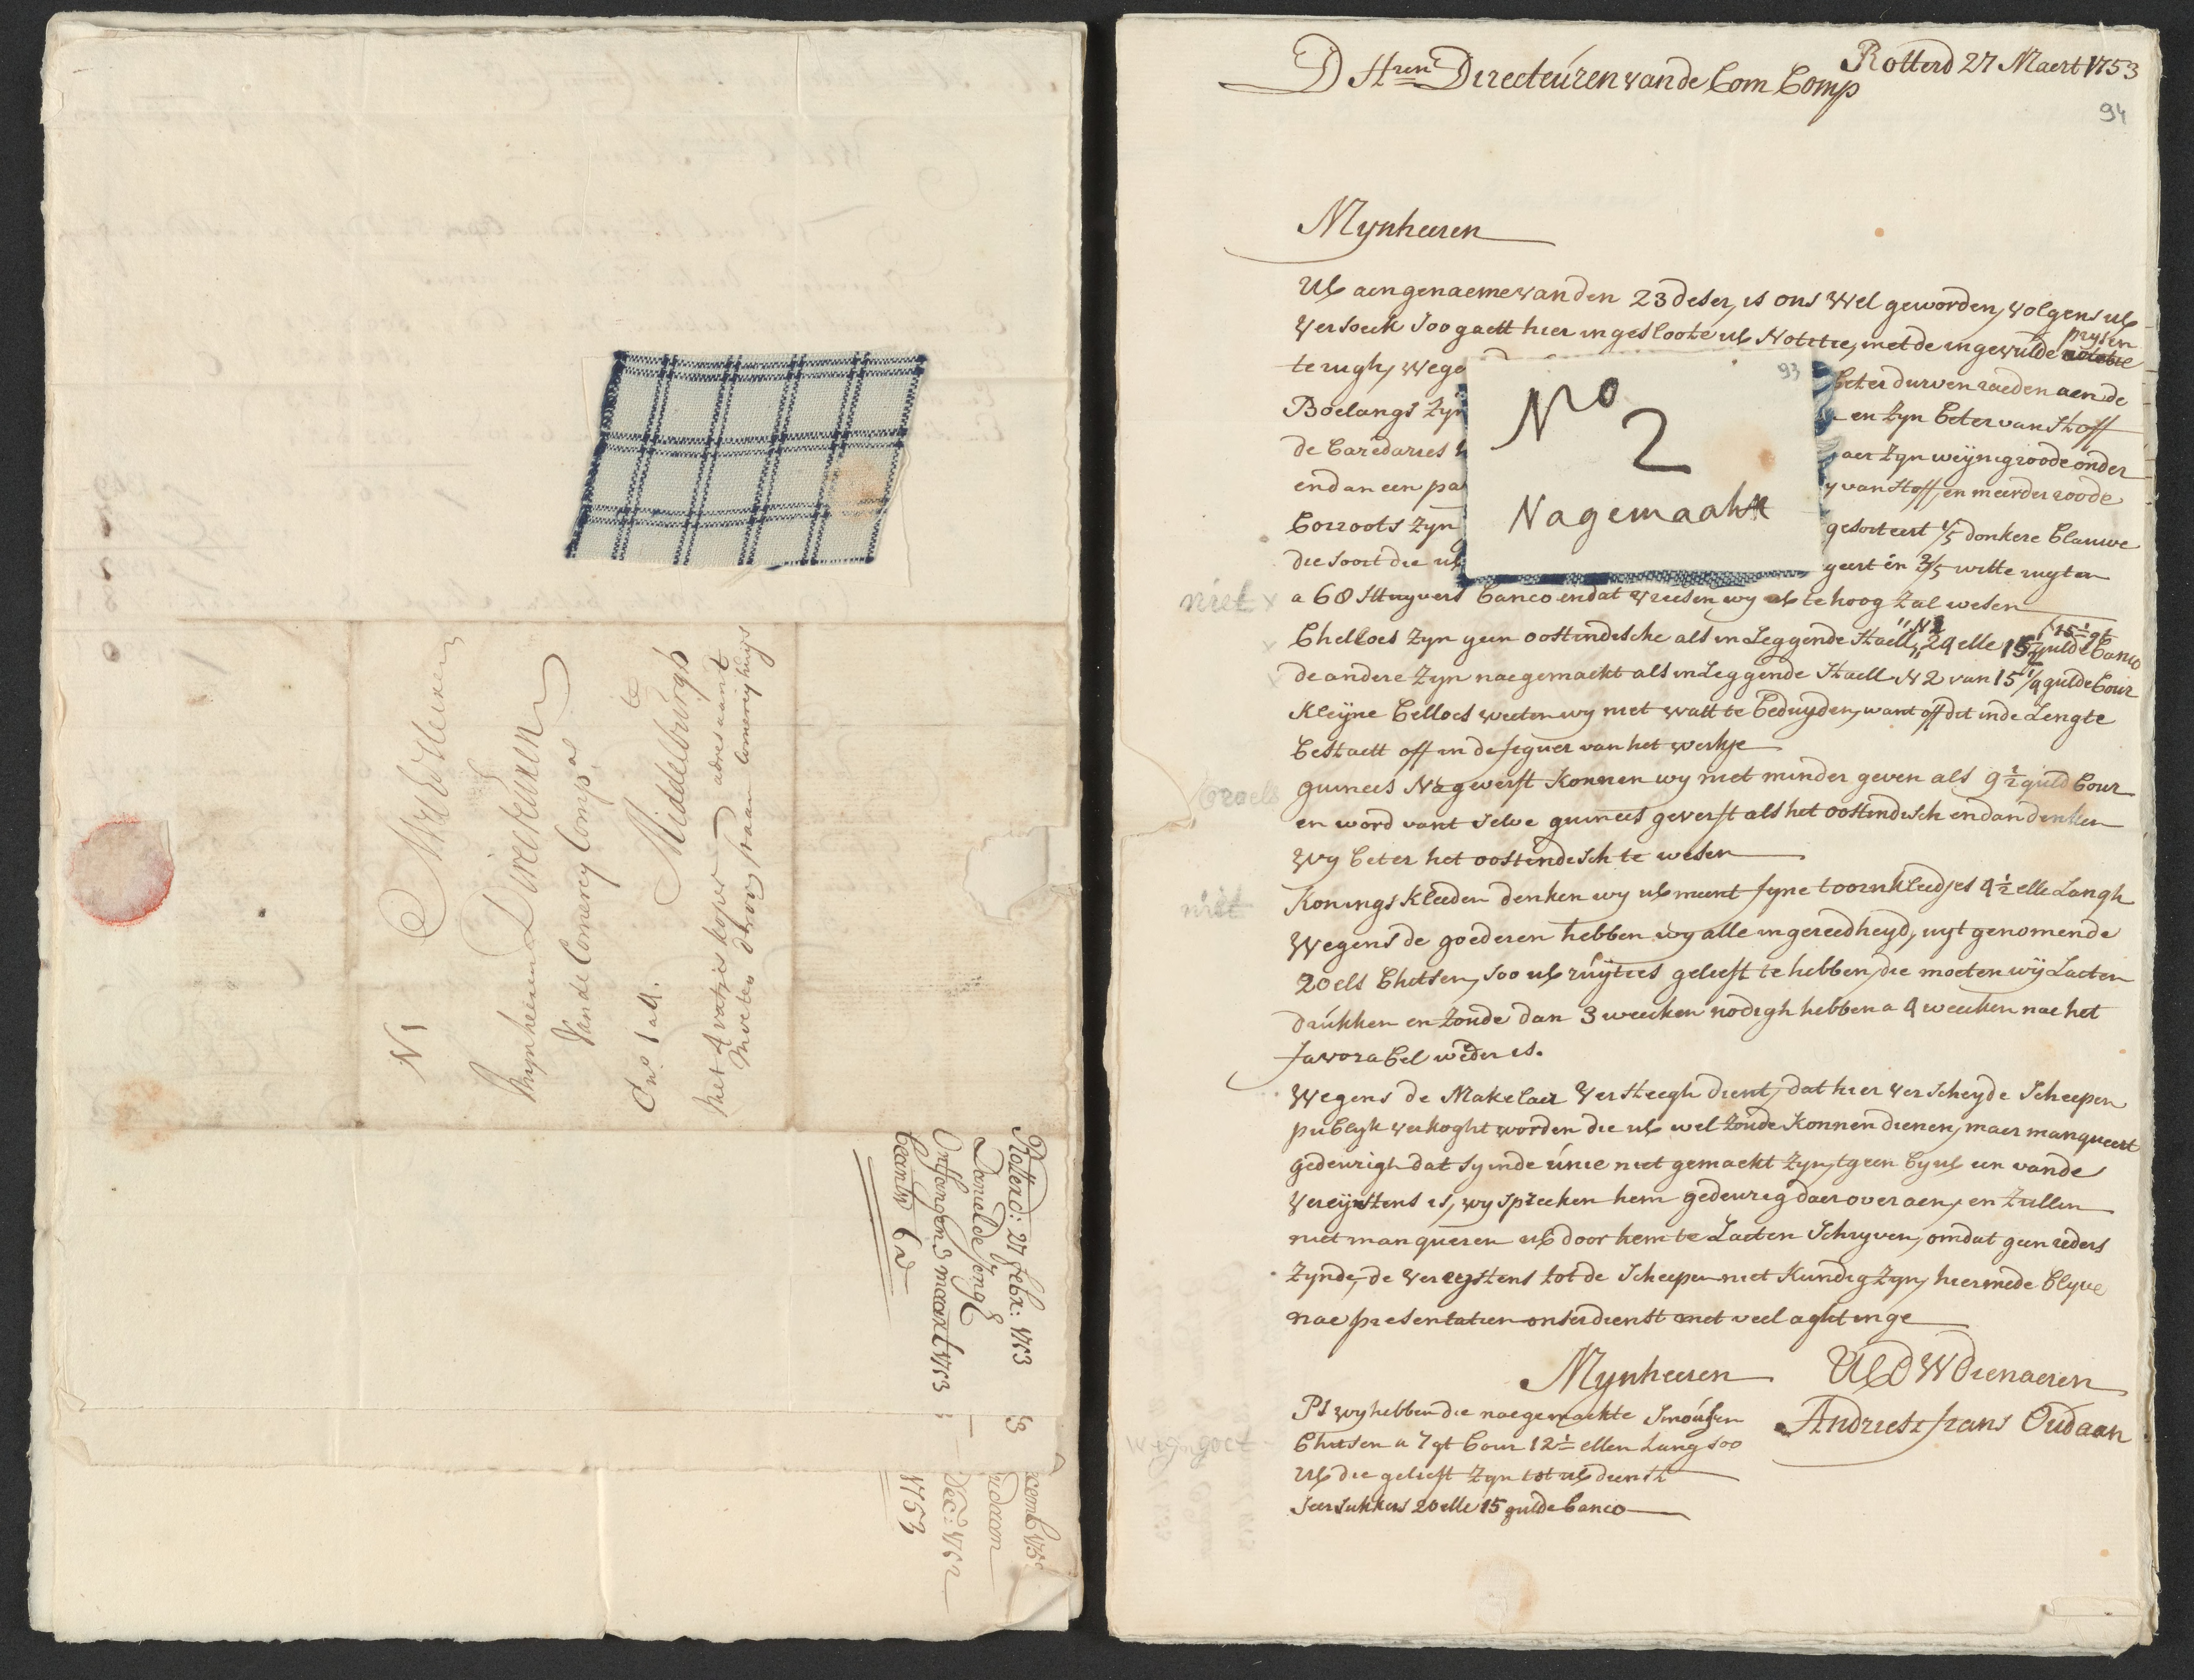 N 1
Mynheeren
Directeuren
Van de Commercy Comp.
te
Middelburgh
Met 4 vatjes koper
Rotterd: 27 febr: 1753
Daniel de Jongh
Ontfangen 3 maart 1753
beantw
Dec: 1752
1753
Rotterd 27 Maert 1753
D Hren Directeuren van de Com Comp
94
Mynheeren
Ul aengenaeme van den 23 deser, is ons wel geworden, volgens ul
versoeck soo gaett hier ingeslooten ul Notitie, met de ingevulde prysen
terugh, wege
beter durven raeden aen de
Boelangs zyn
en zyn beter van stoff
de Caredarries
aer zyn weynig roode onder
endan een pa
y van stoff, en meerder roode
Corroots zyn
gesorteert 1/5 donkere blauwe
die soort die ul
geert en 2/5 witte ruyten
93
No 2
Nagemaakt
niet x
a 68 Stuyvers banco en dat vreesen wy ul te hoog zal wesen
Chelloes zyn geen oostindische als inleggende Staell N 1 24 elle 15 gulde banco
de andere zyn naegemaekt als inleggende Staell N 2 van 15 1/4 gulde Cour
Kleyne Celloes weeten wy niet watt te beduyden, want off dit inde Lengte
bestaett off in de figuer van het werkje
guinees Nagewerft konnen wy niet minder geven als 9 1/2 guld Cour
en word vant selve guinees geverft als het oostindisch en dan denken
wy beter het oostindisch te wesen
niet
Konings Kleeden denken wy ul meent fyne toornkleedjes 4 1/2 elle Langh
Wegens de goederen hebben wy alle in gereedheyd, uyt genomen de
20 els Chitsen, soo ul ruyties gelieft te hebben, die moeten wy Laeten
drukken en zoude dan 3 weeken nodigh hebben a 4 weeken nae het
favorabel weder is.
Wegens de Makelaer Versteegh dient, dat hier verscheyde Scheepen
publyk verkoght worden die ul wel zoude konnen dienen, maer manqueert
gedeurigh dat sy inde unie niet gemaekt zyn, tgeen by ul een vande
vereystens is, wy spreeken hem gedeurig daer over aen, en zullen
niet manqueren ul door hem te Laeten Schryven, omdat geen reders
zynde, de vereystens tot de Scheepen niet kundig zyn, hiermede blyve
nae presentatien onser dienst met veel aghtinge
Mynheeren
UEDWDienaeren
Andries & frans Oudaan
PS wy hebben die naegemaekte Smousen
Chitsen a 7 gt Cour 12 1/2 ellen Lang soo
Ul die gelieft zyn tot ul dienst
Seersukkers 20 elle 15 gulde banco